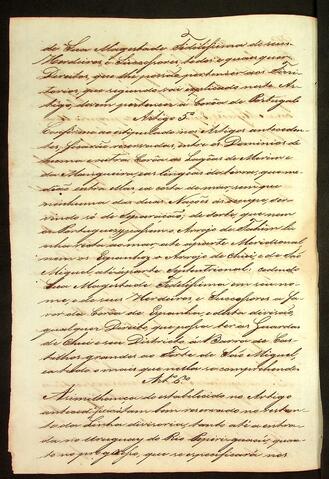 de Sua Magestade Fidelissima, de seus
Herdeiros e Successores todos e quaesquer
Direitos que lhe possão pertencer aos Terri-
torios, que segundo vai explicado neste Ar-
tigo devem pertencer à Coroa de Portugal
Artigo 5º
Conforme ao estipulado nos Artigos anteceden-
tes, ficarão reservadas, entre os Dominios de
huma e outra Coroa as Lagôas de Merim e
da Mangueira, e as linguas de terra, que me-
deão entre ellas, e a costa do mar, sem que
nenhuma das duas Nações as occupe, ser-
vindo só de separação; de sorte, que nem
os Portuguezes passem o Arroio de Tahim li-
nha recta ao mar, até a parte Meridional,
nem os Espanhoes o Arroio de Chui, e de São
Miguel até á parte Septentrional: cedendo
Sua Magestade Fidelissima, em seu no-
me, e de seus Herdeiros e Successores a fa-
vor da Coroa de Espanha, e desta divisão,
qualquer Direito que possa ter ás Guardas
de Chui e seu Districto, á Barra de Cas-
telhos grandes, ao Forte de São Miguel,
e a todo o mais que nella se comprehende
Artº 6º
A similhança do estabelecido no Artigo
antecedente, ficará tambem reservado no restan-
te da Linha divisoria, tanto até a entra-
da no Uruguay do Rio Pepiri-guaçú, quan-
to no progresso, que se especificará nos